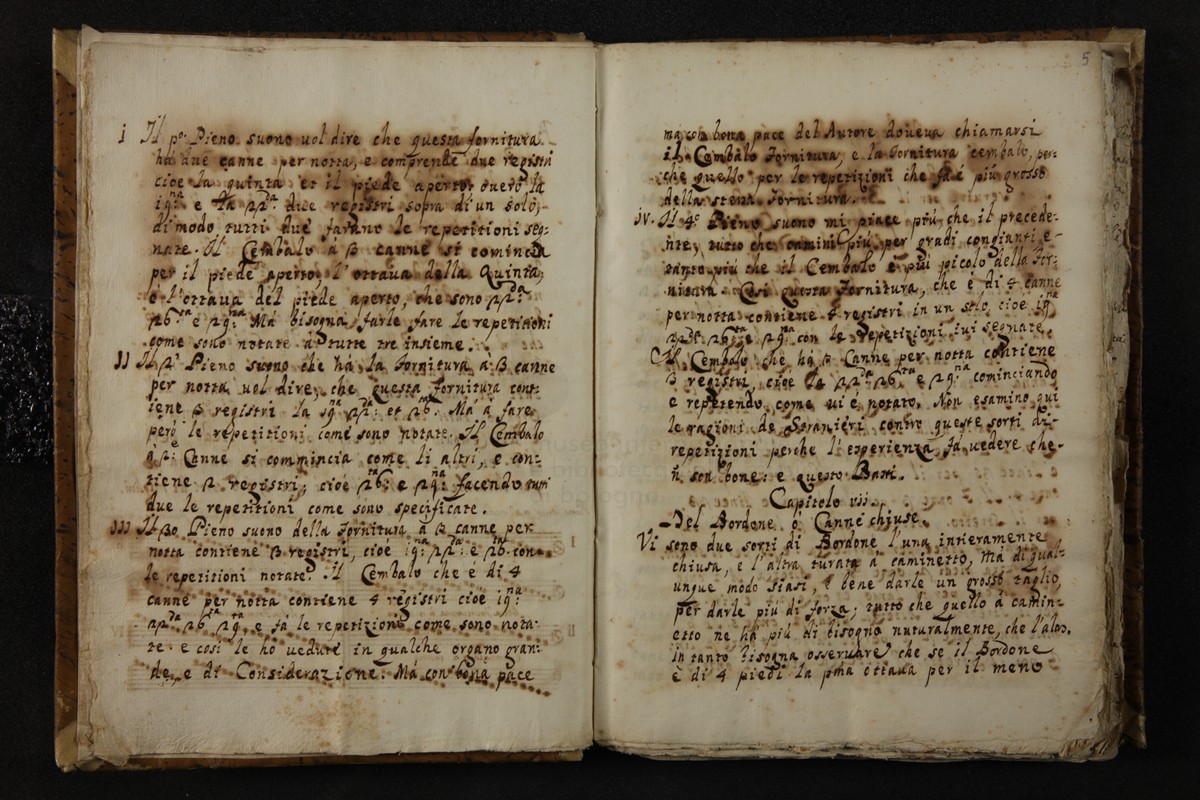 i Il pº: Pieno suono uol dire che questa fornitura
ha due canne per notta, e comprende due registri
cioe la quinta et il piede aperto, ouero la
19:na e la 22:da due registri sopra di un solo,
di modo tutti due farano le repetitioni seg=
nate. Il Cembalo a 3 canne si comincia
per il piede aperto, l'ottaua della Quinta,
e l'ottaua del piede aperto, che sono 22:da
26:ta e 29:na Má bisogna farle fare le repetitioni
come sono notate à tutte tre insieme.
II Il 2º Pieno suono che há la fornitura à 3 canne
per notta uol dire, che questa fornitura cont=
iene 3 registri la 19:na 22: et 26. Má à fare
però le repetitioni come sono notate. Il Cembalo
à 2: Canne si commincia come li altri, e con=
tiene 2 registri, cioe 26:ta e 29:na facendo tutti
due le repetitioni come sono specificate.
III Il 3o Pieno suono della fornitura à 3 canne per
notta contiene 3 registri, cioe 19: 22: e 26 con
le repetitioni notate. Il Cembalo che é di 4
canne per notta contiene 4 registri cioe 19:na
22:da 26:ta 29:na, e fá le repetizioni come sono nota=
te e cosi le ho uedute in qualche organo gran=
de, e di Considerazione: Má con bona pace
5
ma con bona pace del Autore doueua chiamarsi
il Cembalo Fornitura, e la fornitura cembalo, per=
che quello per le repetizioni che fa é piú grosso
della stessa Fornitura.
iv. Il 4º Pieno suono mi piace piú che il precede=
nte, tutto che camini piú per gradi congianti e
tanto piú che il Cembalo é piú picolo della For=
nitura. Cosi questa Fornitura, che é di 4 canne
per notta contiene 4 registri in un solo, cioe 19:na
22:da 26:ta e 29:na con le repetizioni iui segnate
Il Cembalo che há 3 Canne per notta contiene
3 registri, cioe la 22:da 26:ta e 29:na cominciando
e repetendo come ui é notato. Non esamino qui
le ragioni de Stranieri contro queste sorti di
repetizioni perche l'esperienza fá uedere che
ñ son bone: e questo Basti.
Capitolo vii.
Del Bordone ó Canne chiuse.
Vi sono due sorti di Bordone l'una intieramente
chiusa, e l'altra turata à caminetto, Má di qual=
unque modo siasi, é bene darle un grosso taglio,
per darle piú di forza; tutto che quello á camin=
etto ne há piú di bisogno nuturalmente, che l'altro.
In tanto bisogna osseruare che se il Bordone
è di 4 piedi la pma ottaua per il meno